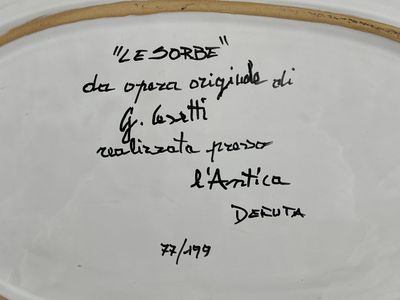 "LE SORBE"
da opera originale di
G. Cesetti
realizzata presso
l'Antica
DERUTA
77/199